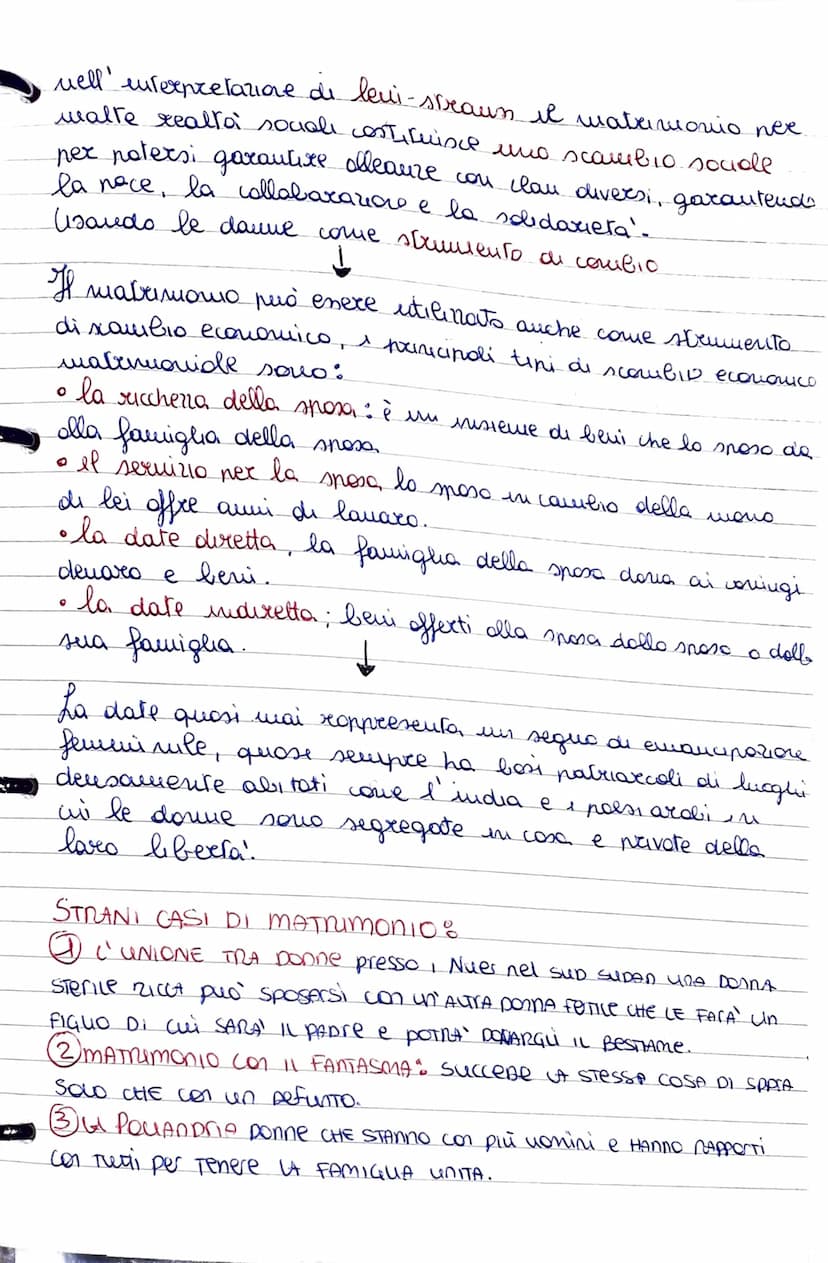 nell'interpretazione di levi-straun il matrimonio per
molte realtà sociali costituisce uno scambio sociale
per potersi garantire alleanze con clan diversi, garantendo
la pace, la collaborazione e la solidarietà.
Usando le donne come strumento di cambio
↓
Il matrimonio può essere utilizzato anche come strumento
di scambio economico, i principali tipi di scambio economico
matrimoniale sono:
• la ricchezza della sposa: è un insieme di beni che lo sposo da
alla famiglia della sposa
• il servizio per la sposa, lo sposo in cambio della mano
di lei offre anni di lavoro.
• la dote diretta, la famiglia della sposa dona ai coniugi
denaro e beni.
• la dote indiretta; beni offerti alla sposa dallo sposo o dalla
sua famiglia.
↓
La dote quasi mai rappresenta un segno di emancipazione
femminile, quasi sempre ha basi patriarcali di luoghi
densamente abitati come l'india e i paesi arabi in
cui le donne sono segregate in casa e private della
loro libertà.
STRANI CASI DI MATRIMONIO:
① L'UNIONE TRA DONNE presso i Nuer nel SUD SUDAN UNA DONNA
STERILE RICCA PUO' SPOSARSI CON UN'ALTRA DONNA FERTILE CHE LE FARA' UN
FIGLIO DI CUI SARA' IL PADRE E POTRA' DONARGLI IL BESTIAME.
② MATRIMONIO CON IL FANTASMA: SUCCEDE LA STESSA COSA DI SOPRA
SOLO CHE CON UN DEFUNTO.
③ LA POLIANDRIA DONNE CHE STANNO CON PIÙ UOMINI E HANNO RAPPORTI
CON TUTTI PER TENERE LA FAMIGLIA UNITA.